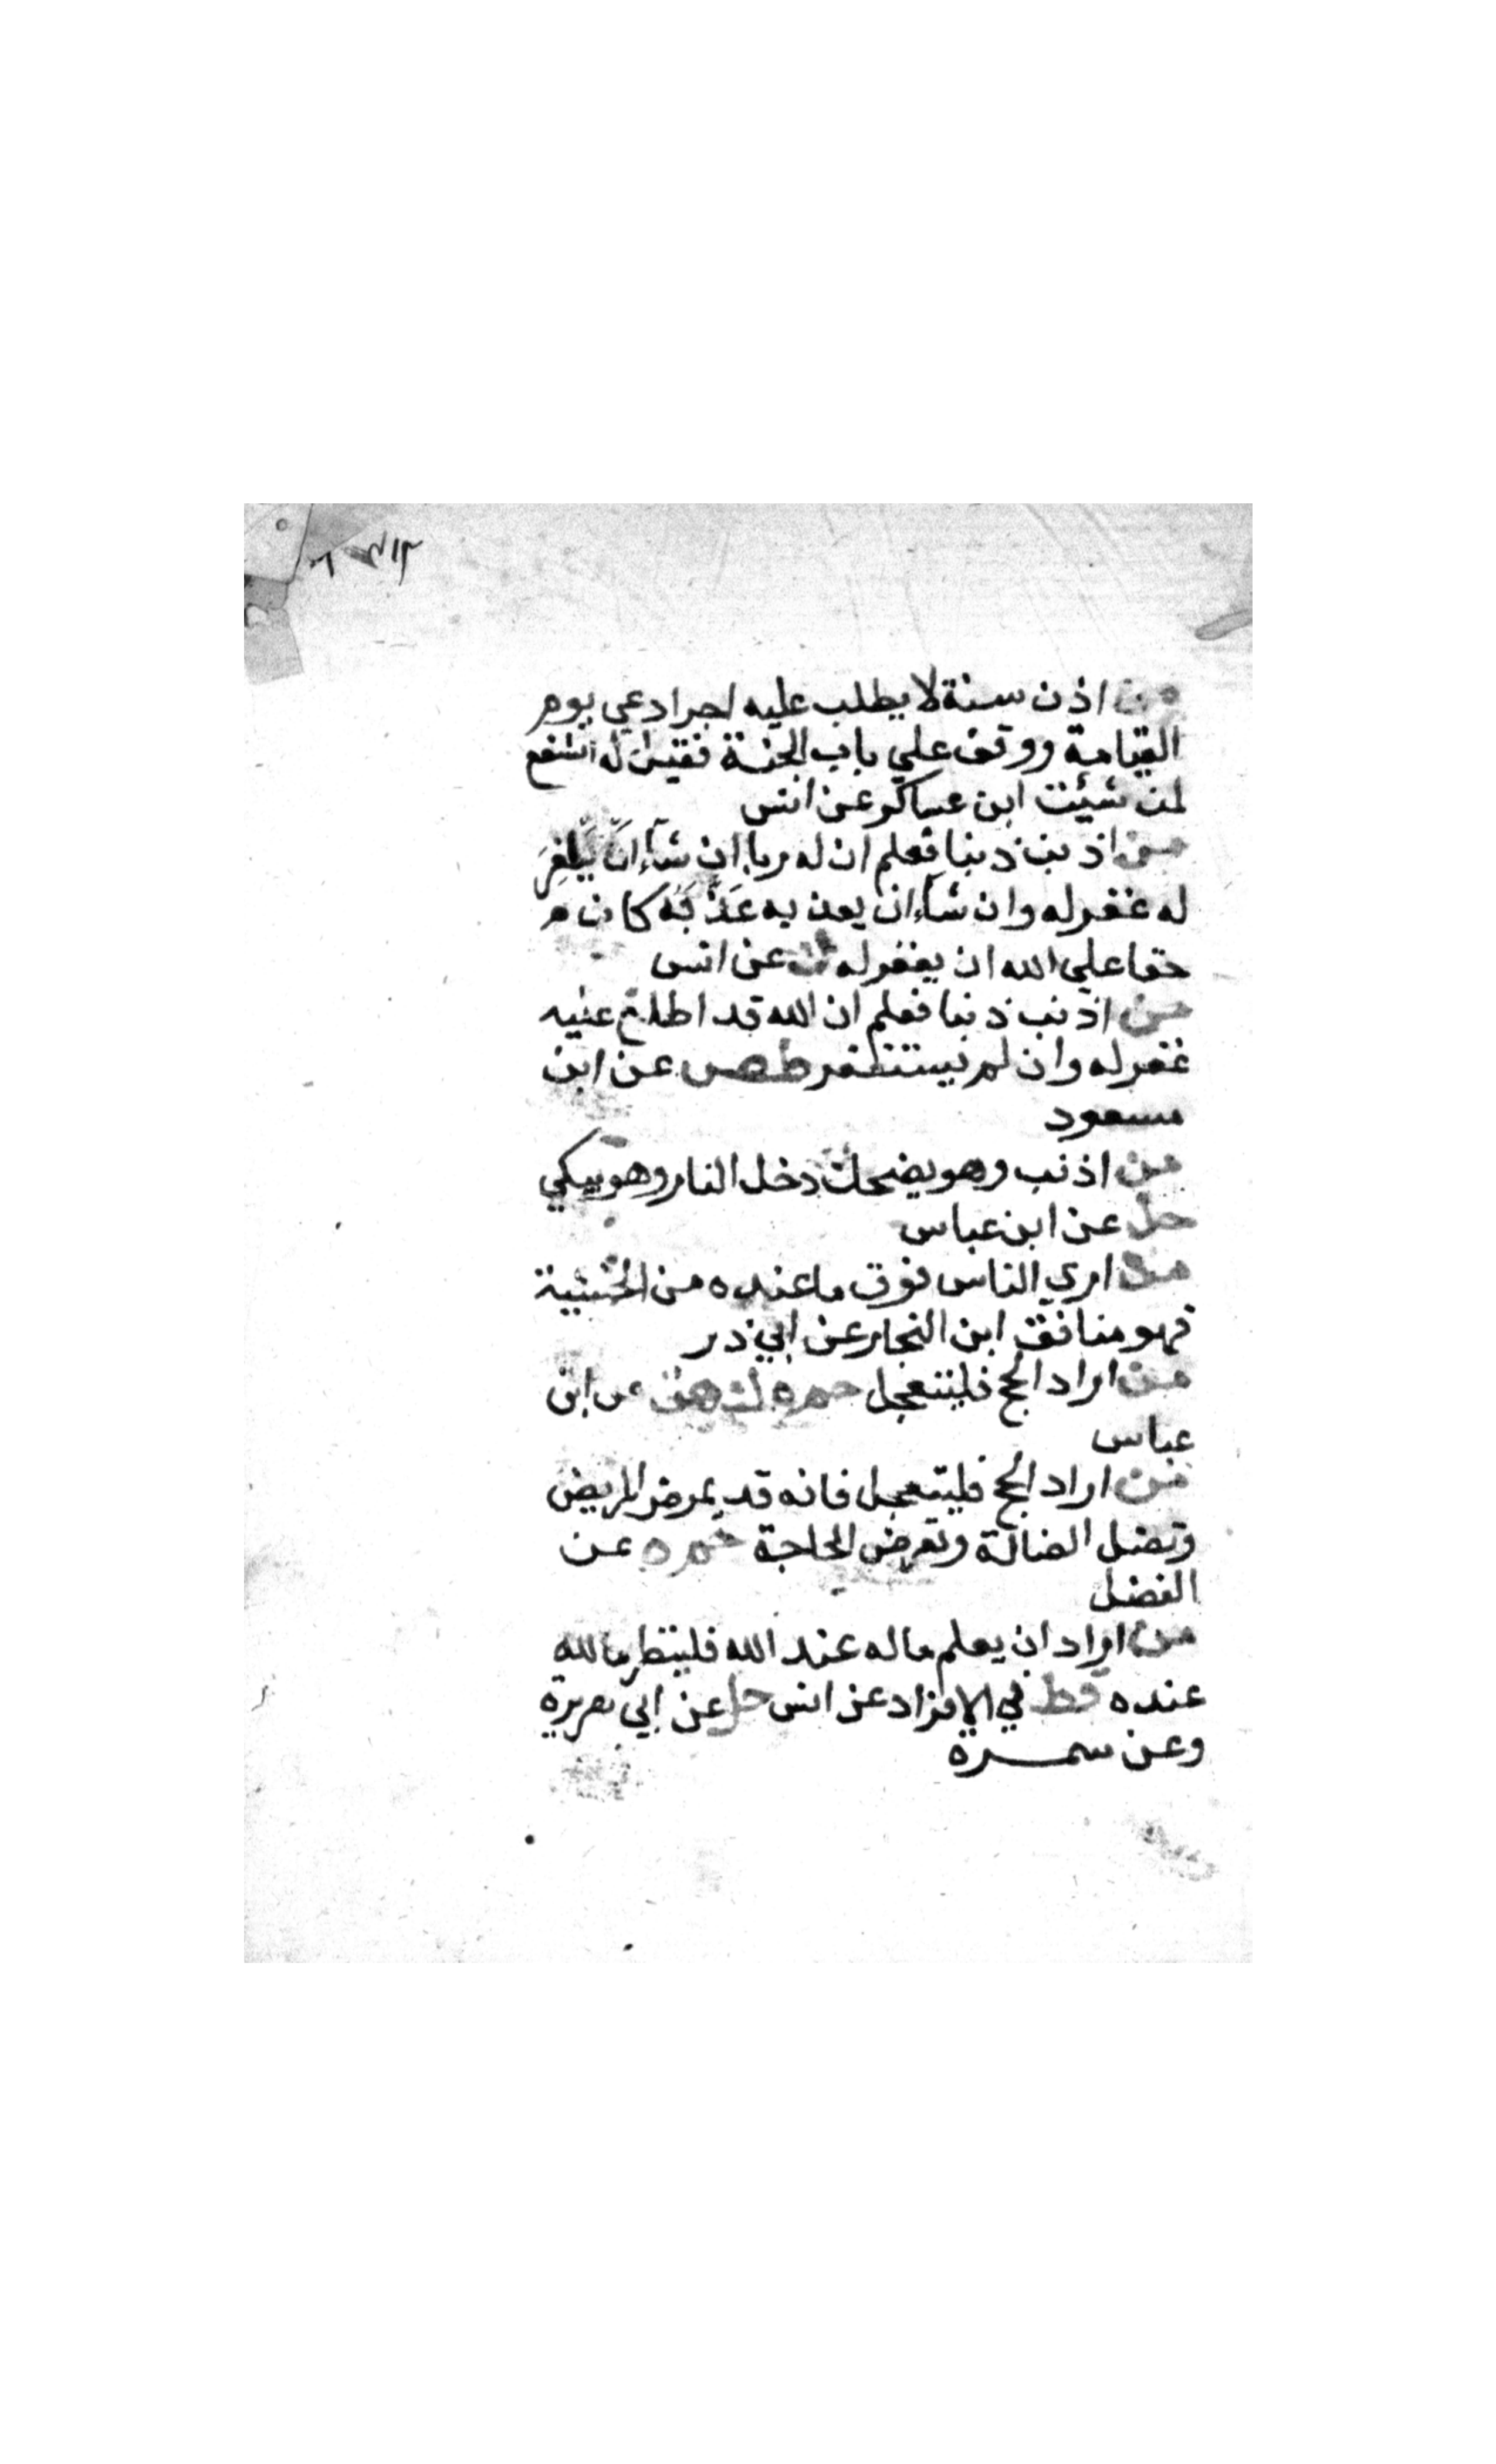 من اذن سنة لا يطلب عليه اجرا دعي يوم
القيامة ووقف علي باب الجنة فقيل له اشفع
لمن شئت ابن عساكر عن انس
من اذنب ذنبا فعلم ان له ربا ان شاء ان يغفر
له غفر له وان شاء ان يعذبه عذبه كان م
حقا علي الله ان يغفر له عن انس
من اذنب ذنبا فعلم ان الله قد اطلع عليه
غفر له وان لم يستغفر طص عن ابن
مسعود
من اذنب وهو يضحك دخل النار وهو يبكي
حل عن ابن عباس
من اري الناس فوق ما عنده من الخشية
فهو منافق ابن النجار عن ابي ذر
من اراد الحج فليتعجل حم د ك هق عن ابن
عباس
من اراد الحج فليتعجل فانه قد يمرض المريض
وتضل الضالة وتعرض الحاجة حم ه عن
الفضل
من اراد ان يعلم ماله عند الله فلينظر ما لله
عنده قط في الافراد عن انس حل عن ابي هريرة
وعن سمرة